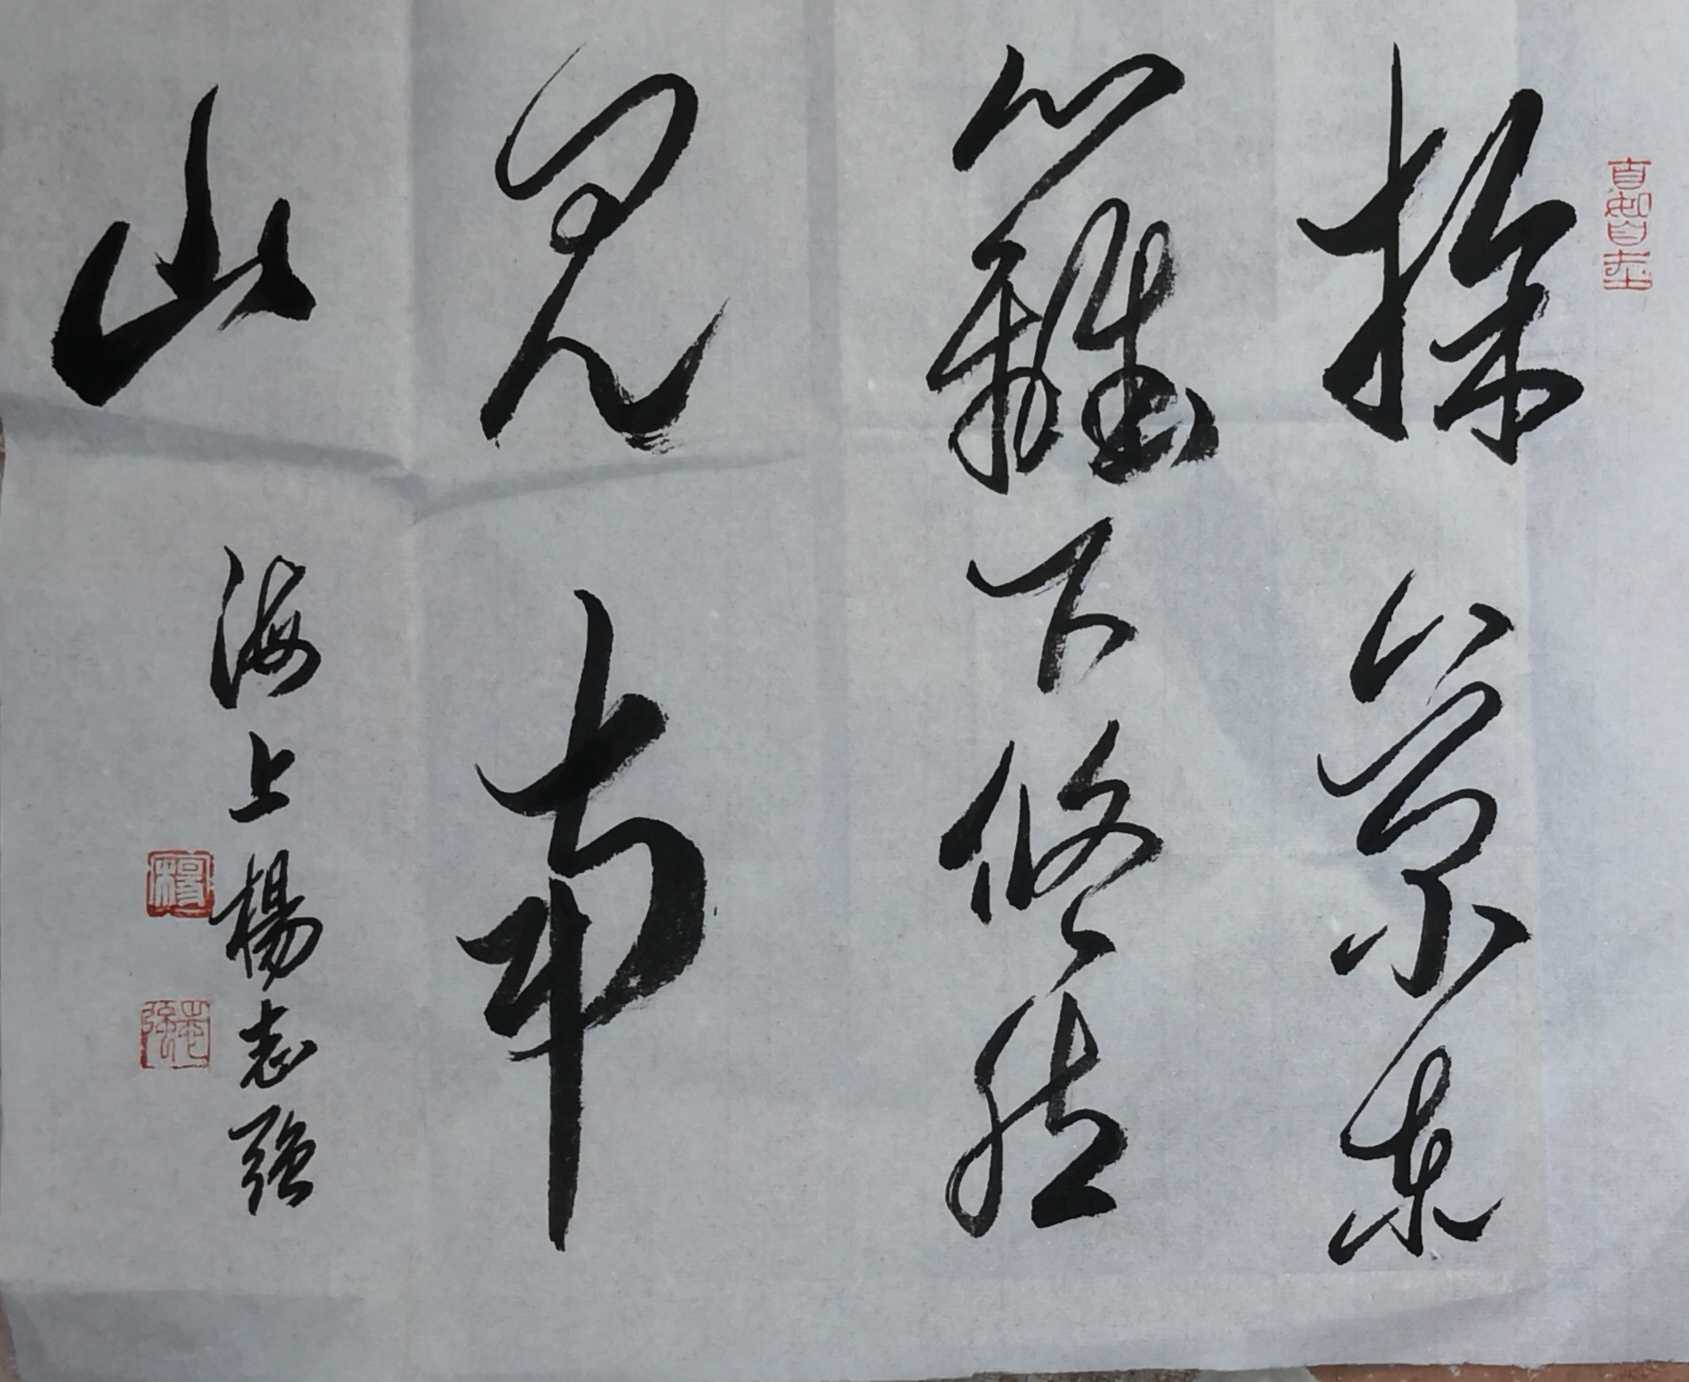 採菊東
籬下悠然
見南
山
海上楊志強
楊
志強